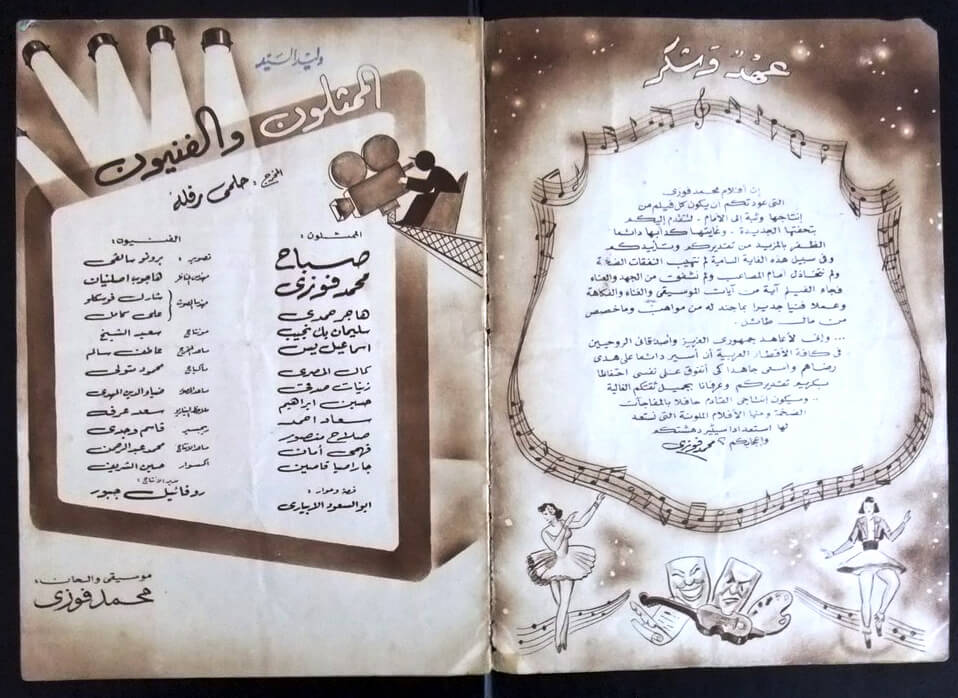 عهد وشكر
إن أفلام محمد فوزي
التى عودتكم أن يكون كل فيلم من
إنتاجها وثبة إلى الأمام . لتتقدم إليكم
بتحفتها الجديدة . وغايتها كدأبها دائما
الظفر بالمزيد من تقديركم وتأييدكم
وفى سبيل هذه الغاية السامية لم تتهيب النفقات الضخمة
ولم تتخاذل أمام المصاعب ولم تشفق من الجهد والعناء
فجاء الفيلم آية من آيات الموسيقى والغناء والفكاهة
وعملا فنيا جديرا بما جند له من مواهب وما خصص
من مال طائل .
... وإنى لأعاهد جمهورى العزيز وأصدقائى الروحيين
فى كافة الأقطار العربية أن أسير دائما على هدى
رضاهم وأسعى جاهدا كى أتفوق على نفسى احتفاظا
بكريم تقديركم وعرفانا بجميل ثقتكم الغالية
.. وسيكون إنتاجى القادم حافلا بالمفاجآت
الضخمة ومنها الأفلام الملونة التى نستعد
لها استعدادا سيثير دهشتكم
وإعجابكم محمد فوزى
وليد السيد
الممثلون والفنيون
المخرج : حلمى رفلة
الممثلون :
صباح
محمد فوزى
هاجر حمدى
سليمان بك نجيب
اسماعيل يس
كمال المصرى
زينات صدقى
حسين ابراهيم
سعاد احمد
صلاح منصور
فهمى أمان
جاراميا قامين
قصة وحوار :
ابو السعود الابيارى
الفنيون :
تصوير : برونو سالفى
مهندس المناظر هاجوب اصلانيان
مهندسا الصوت شارل فوسكلو
على كامل
مونتاج سعيد الشيخ
مساعد المخرج عاطف سالم
ماكياج محمود متولى
ضياء الدين المهدى
سعد عرفه
ريجيسير قاسم وجدى
مساعد الانتاج محمود عبد الرحمن
اكسسوار حسين الشريف
مدير الانتاج :
روفائيل جبور
موسيقى والحان :
محمد فوزى